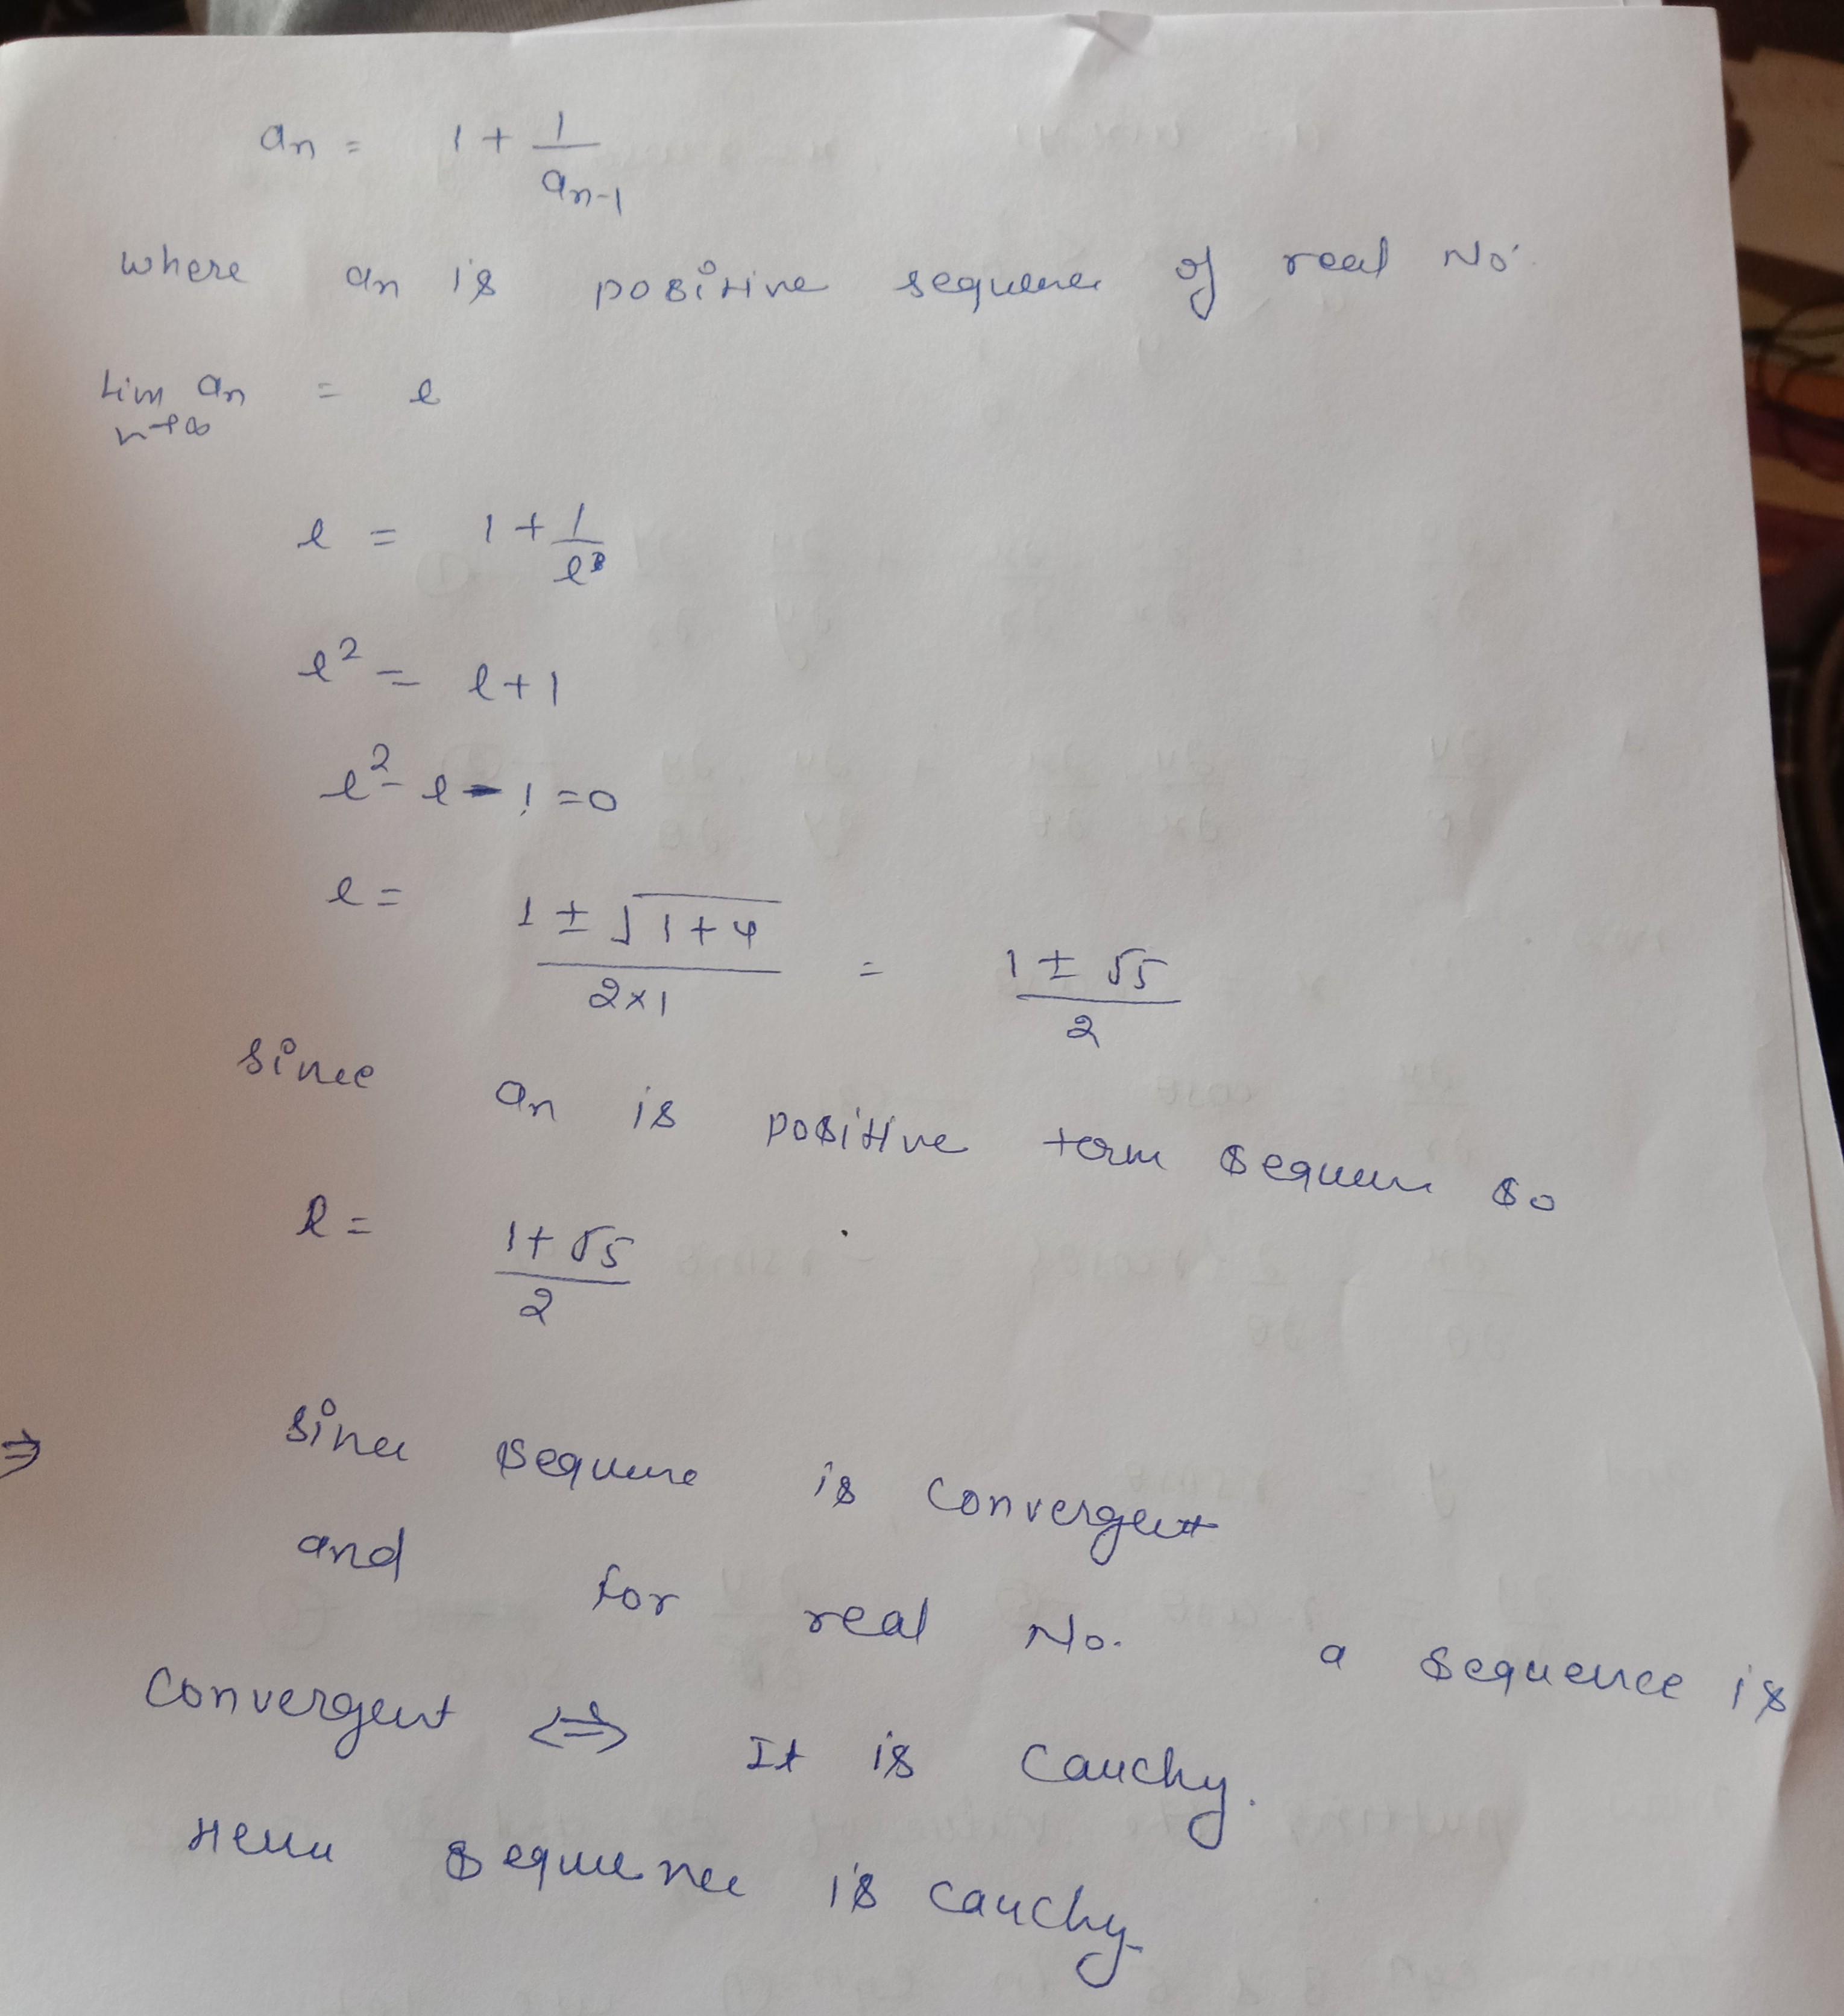 an = 1 + 1/an-1
where an is positive sequence of real No.
Lim n→∞ an = l
l = 1 + 1/l
l² = l+1
l² - l - 1 = 0
l = (1 ± √(1+4))/(2×1) = (1 ± √5)/2
since an is positive term sequen so
l = (1+√5)/2
⇒ since sequence is convergent
and for real No. a sequence is
convergent ⇔ It is Cauchy.
Hence sequence is cauchy.